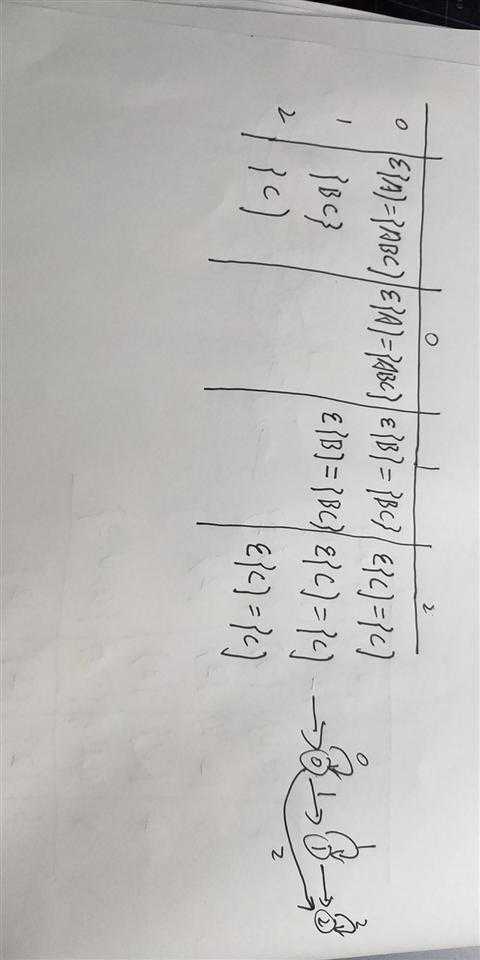 0 1 2
0 ε{A}={ABC} ε{A}={ABC} ε{B}={BC} ε{C}={C}
1 {BC} ε{B}={BC} ε{C}={C}
2 {C} ε{C}={C}
0 1 2
0 1 1 2
2